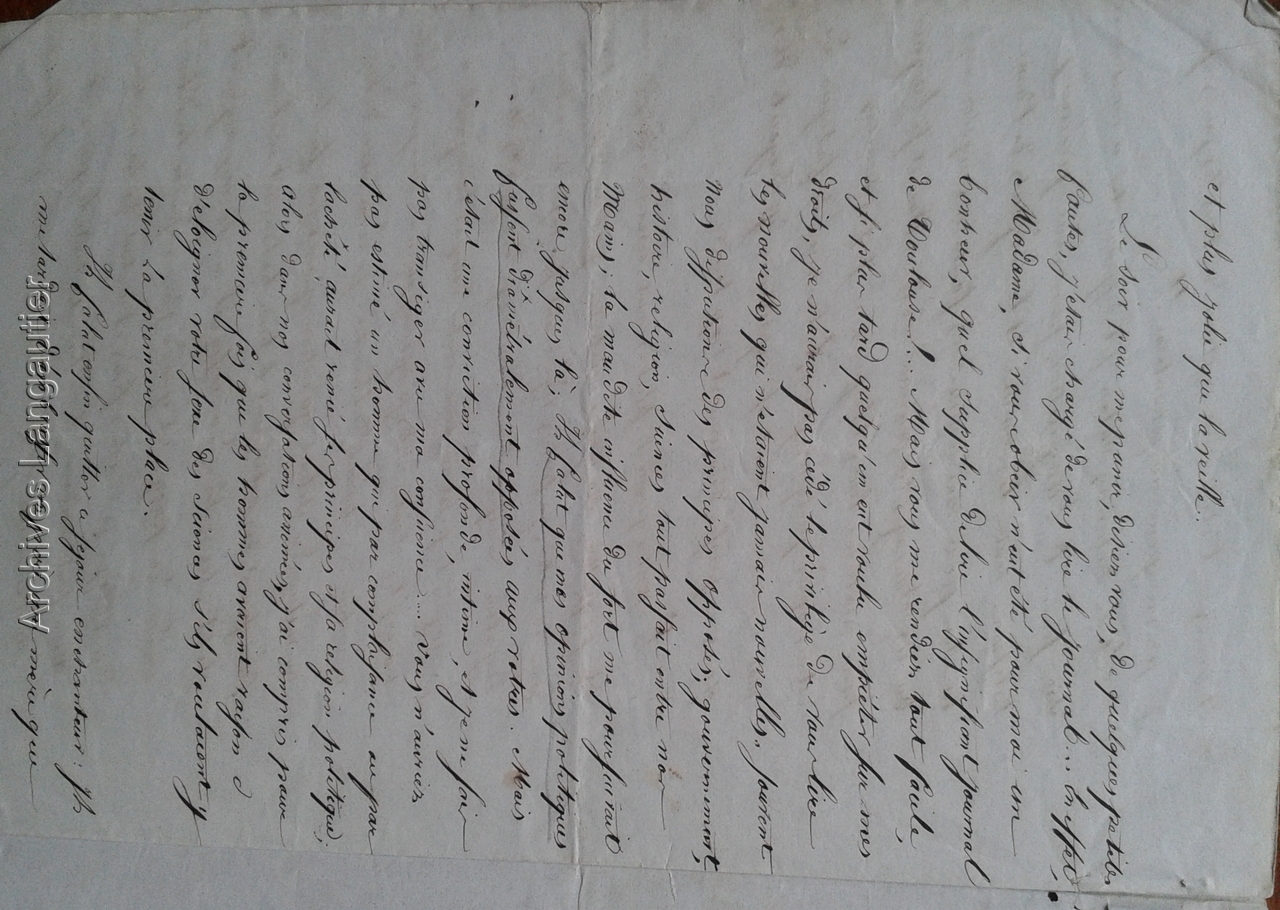 et plus jolie que la veille.
Le soir pour me punir, disiez vous, de quelques petites
fautes, j'étais chargé de vous lire le journal... en effet,
Madame, si vous obéir n'eut été pour moi un
bonheur, quel supplice de lire l'insignifiant journal
de Toulouse!.. Mais vous me rendiez tout facile,
et si plus tard quelqu'un eut voulu empiéter sur mes
droits, je n'aurais pas cédé le privilège de vous lire
les nouvelles qui n'étaient jamais nouvelles. Souvent
nous discutions des principes opposés; gouvernement,
histoire, religion, sciences tout passait entre nos
mains; la maudite influence du sort me poursuivait
encore jusques là; Il falut que mes opinions politiques
fussent diamétralement opposées aux votres. Mais
c'était une conviction profonde, intime, et je ne sais
pas transiger avec ma conscience... Vous n'auriez
pas estimé un homme qui par complaisance ou par
lacheté, aurait renié ses principes et sa religion politique;
alors dans nos conversations animées, j'ai compris pour
la première fois que les hommes avaient raison d
d'éloigner votre sexe des sciences s'ils voulaient y
tenir la première place.
Il falut enfin quitter ce séjour enchanteur: Il
me tardait
mère que
Archives Langautier